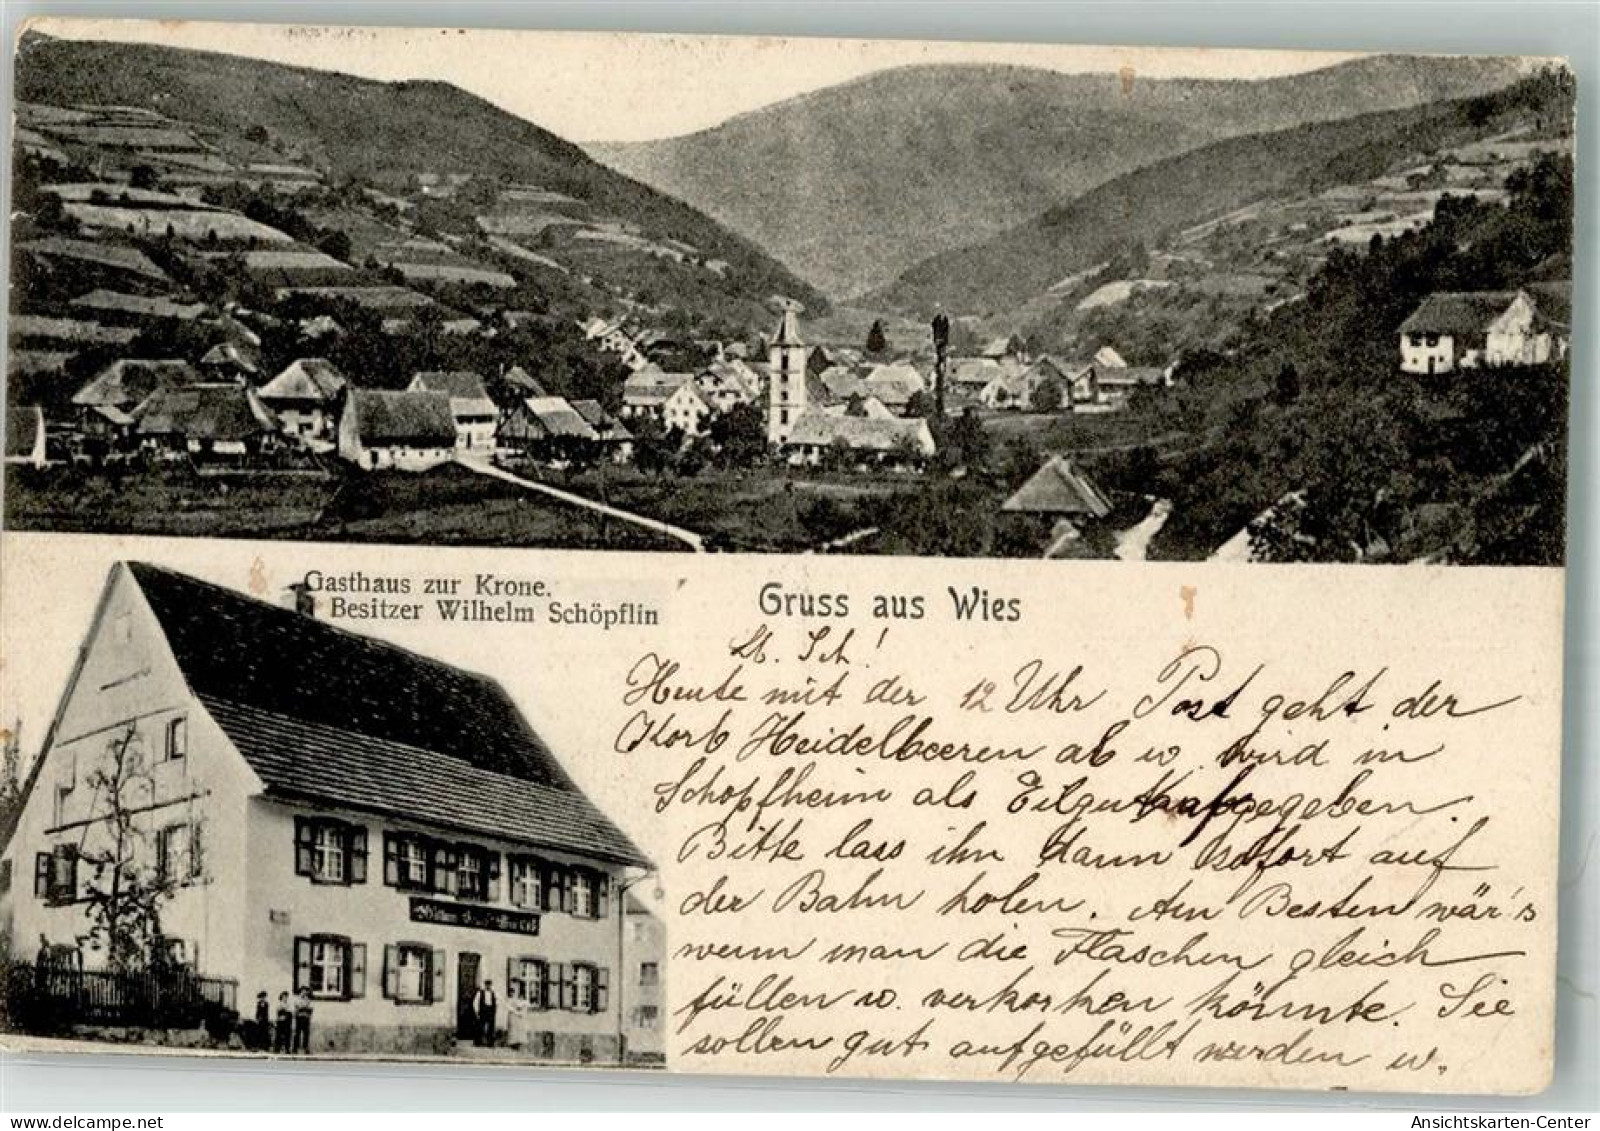 Gasthaus zur Krone.
Besitzer Wilhelm Schöpflin
Gruss aus Wies
Lb. Sch!
Heute mit der 12 Uhr Post geht der
Korb Heidelbeeren ab w. wird in
Schopfheim als Eilgut abgegeben.
Bitte lass ihn dann sofort auf
der Bahn holen. Am Besten wär's
wenn man die Flaschen gleich
füllen w. verkorken könnte. Sie
sollen gut aufgefüllt werden w.
Ansichtskarten-Center